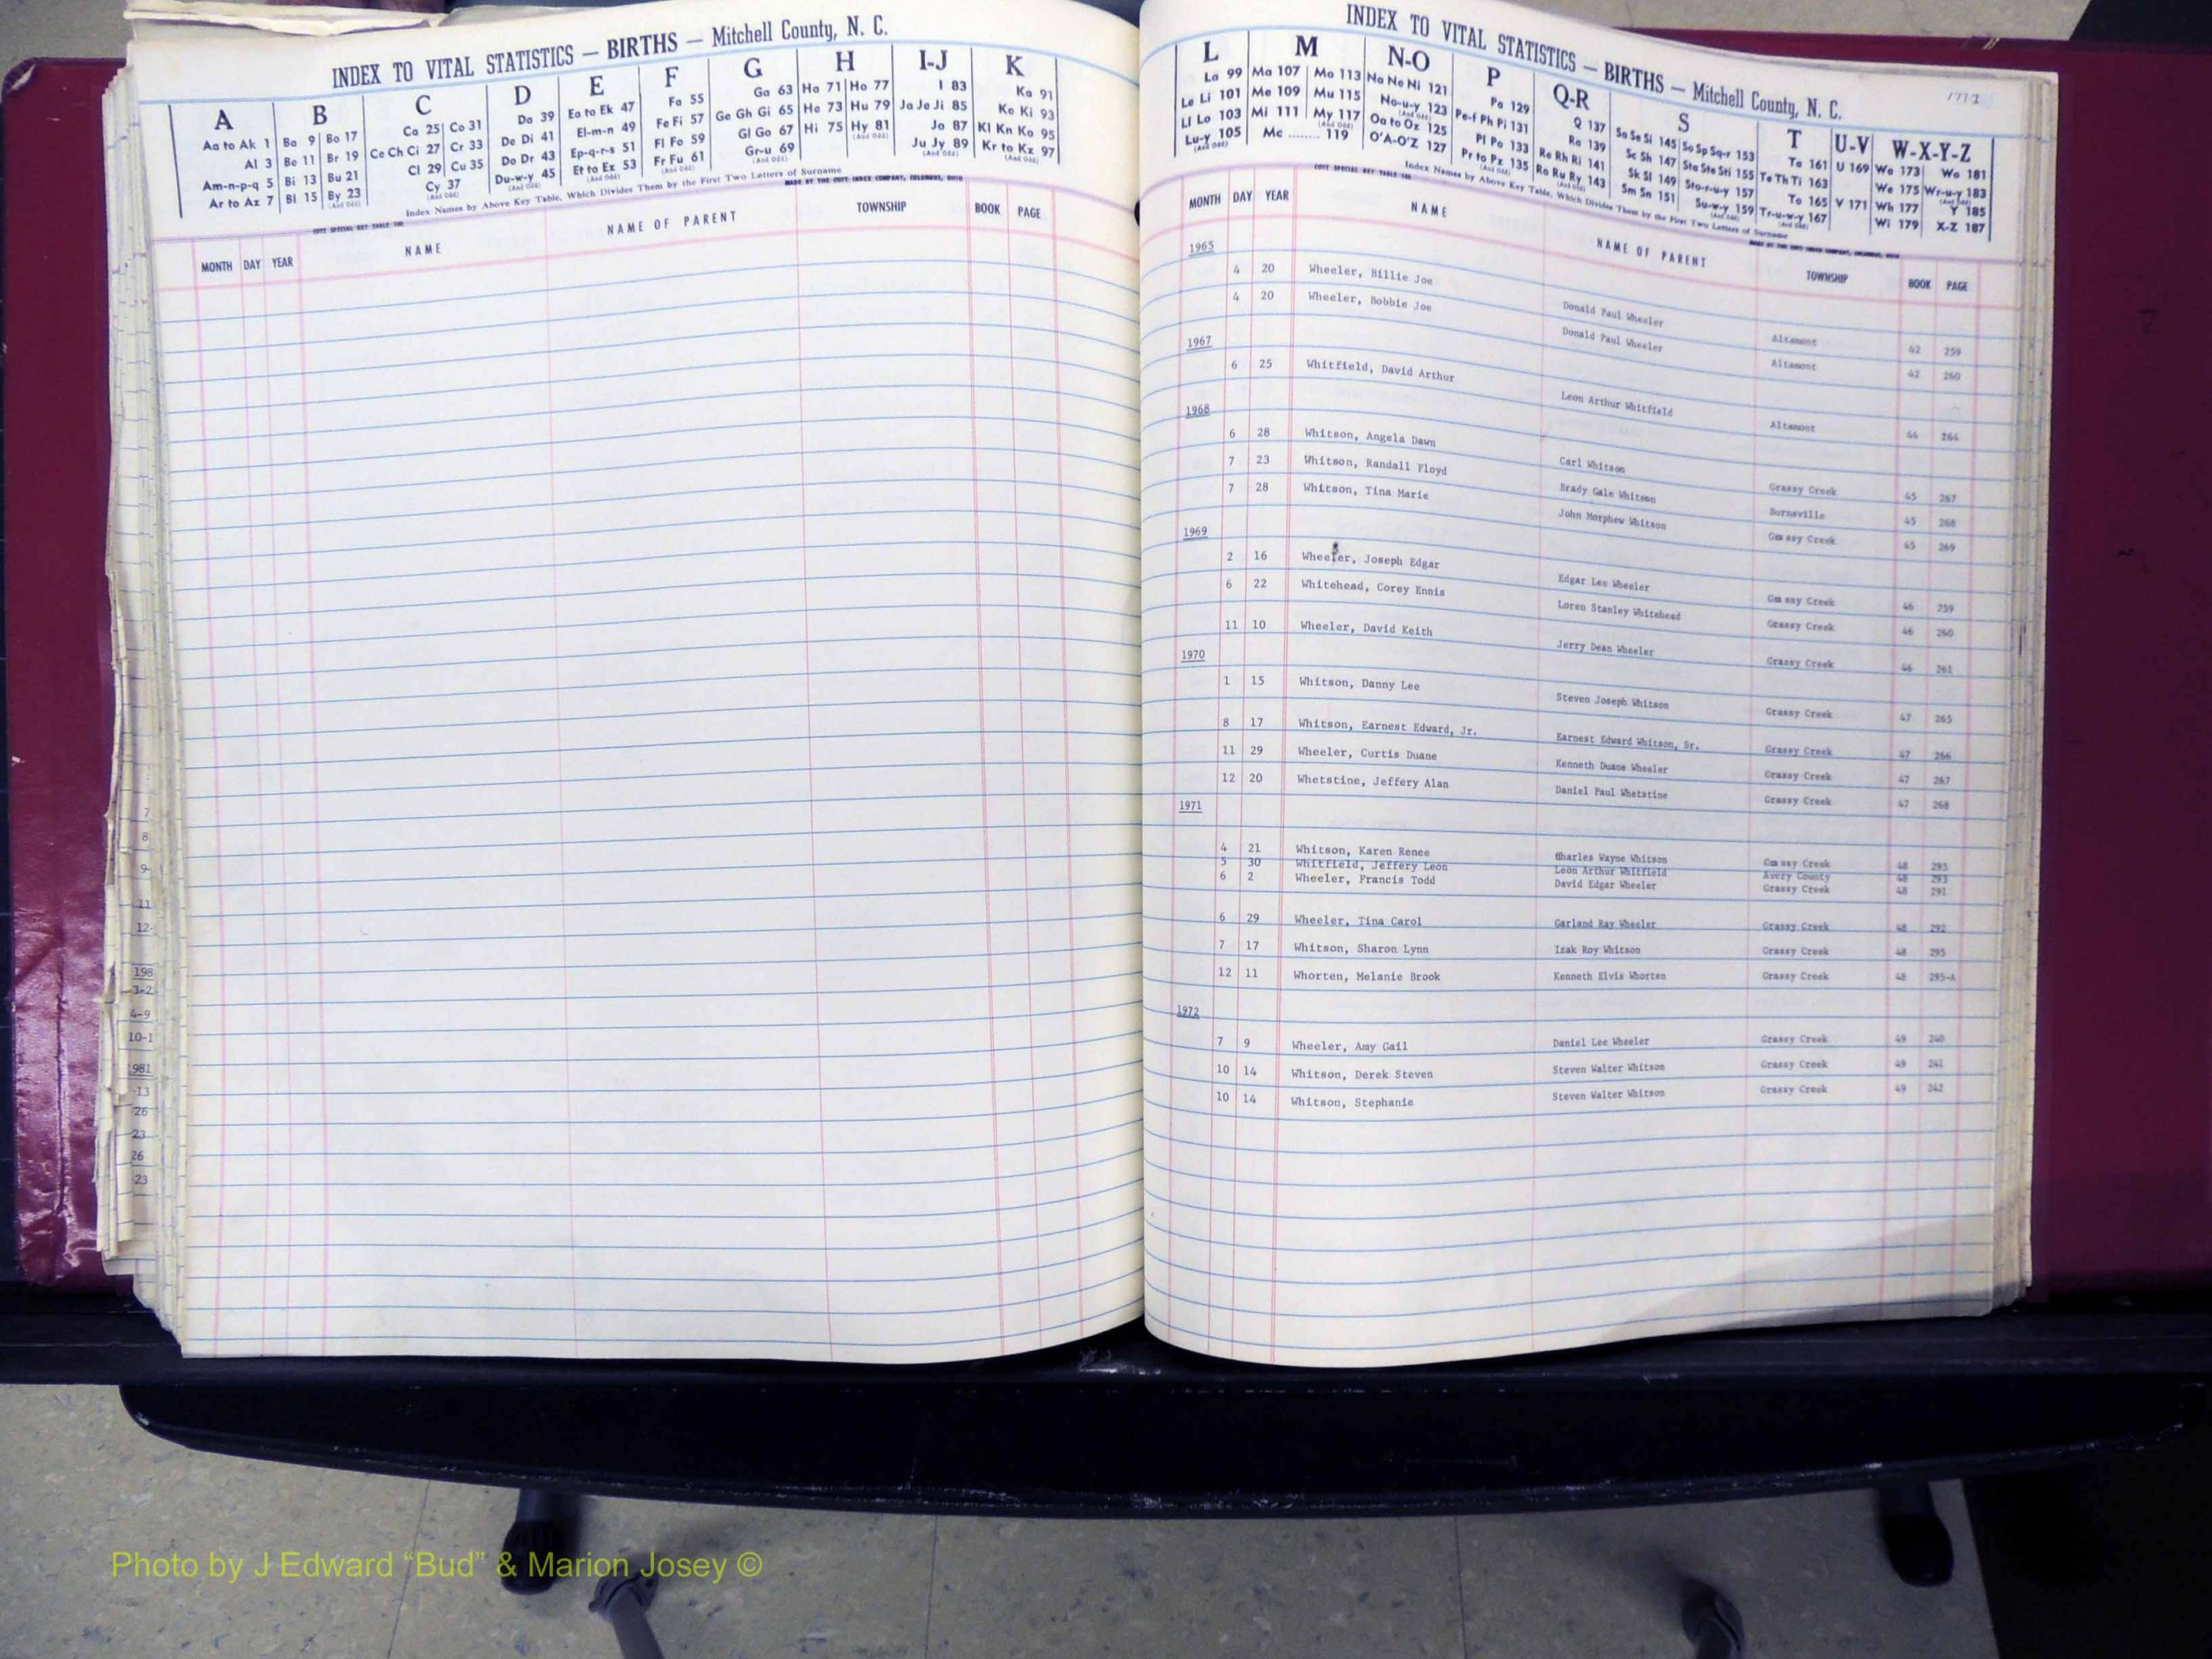 INDEX TO VITAL STATISTICS — BIRTHS — Mitchell County, N. C.
A B C D E F G H I-J K
Aa to Ak 1 Ba 9 Bo 17 Ca 25 Co 31 Da 39 Ea to Ek 47 Fa 55 Ga 63 Ha 71 Ho 77 I 83 Ka 91
Al 3 Be 11 Br 19 Ce Ch Ci 27 Cr 33 De Di 41 El-m-n 49 Fe Fi 57 Ge Gh Gi 65 He 73 Hu 79 Ja Je Ji 85 Ke Ki 93
Am-n-p-q 5 Bi 13 Bu 21 Cl 29 Cu 35 Do Dr 43 Ep-q-r-s 51 Fl Fo 59 Gl Go 67 Hi 75 Hy 81 Jo 87 Kl Kn Ko 95
Ar to Az 7 Bl 15 By 23 Cy 37 Du-w-y 45 Et to Ex 53 Fr Fu 61 Gr-u 69 Ju Jy 89 Kr to Kz 97
(And Odd) (And Odd) (And Odd) (And Odd) (And Odd) (And Odd) (And Odd)
Index Names by Above Key Table, Which Divides Them by the First Two Letters of Surname
COTT SPECIAL KEY TABLE 188 MADE BY THE COTT INDEX COMPANY, COLUMBUS, OHIO
MONTH DAY YEAR NAME NAME OF PARENT TOWNSHIP BOOK PAGE
7
8
9-
11
12-
198
3-2
4-9
10-1
981
-13
26
23
26
23
INDEX TO VITAL STATISTICS — BIRTHS — Mitchell County, N. C.
L M N-O P Q-R S T U-V W-X-Y-Z
La 99 Ma 107 Mo 113 Na Ne Ni 121 Pa 129 Q 137 Sa Se Si 145 So Sp Sq-r 153 Ta 161 U 169 Wa 173 Wo 181
Le Li 101 Me 109 Mu 115 No-u-y 123 Pe-f Ph Pi 131 Ra 139 Sc Sh 147 Sta Ste Sti 155 Te Th Ti 163 We 175 Wr-u-y 183
Ll Lo 103 Mi 111 My 117 Oa to Oz 125 Pl Po 133 Re Rh Ri 141 Sk Sl 149 Sto-r-u-y 157 To 165 V 171 Wh 177 Y 185
Lu-y 105 Mc ........ 119 O'A-O'Z 127 Pr to Pz 135 Ro Ru Ry 143 Sm Sn 151 Su-w-y 159 Tr-u-w-y 167 Wi 179 X-Z 187
(And Odd) (And Odd) (And Odd) (And Odd) (And Odd) (And Odd) (And Odd) (And Odd)
Index Names by Above Key Table, Which Divides Them by the First Two Letters of Surname
COTT SPECIAL KEY TABLE 188 MADE BY THE COTT INDEX COMPANY, COLUMBUS, OHIO
MONTH DAY YEAR NAME NAME OF PARENT TOWNSHIP BOOK PAGE
1965
4 20 Wheeler, Billie Joe Donald Paul Wheeler Altamont 42 259
4 20 Wheeler, Bobbie Joe Donald Paul Wheeler Altamont 42 260
1967
6 25 Whitfield, David Arthur Leon Arthur Whitfield Altamont 44 264
1968
6 28 Whitson, Angela Dawn Carl Whitson Grassy Creek 45 267
7 23 Whitson, Randall Floyd Brady Gale Whitson Burnsville 45 268
7 28 Whitson, Tina Marie John Morphew Whitson Grassy Creek 45 269
1969
2 16 Wheeler, Joseph Edgar Edgar Lee Wheeler Grassy Creek 46 259
6 22 Whitehead, Corey Ennis Loren Stanley Whitehead Grassy Creek 46 260
11 10 Wheeler, David Keith Jerry Dean Wheeler Grassy Creek 46 261
1970
1 15 Whitson, Danny Lee Steven Joseph Whitson Grassy Creek 47 265
8 17 Whitson, Earnest Edward, Jr. Earnest Edward Whitson, Sr. Grassy Creek 47 266
11 29 Wheeler, Curtis Duane Kenneth Duane Wheeler Grassy Creek 47 267
12 20 Whetstine, Jeffery Alan Daniel Paul Whetstine Grassy Creek 47 268
1971
4 21 Whitson, Karen Renee Charles Wayne Whitson Grassy Creek 48 295
5 30 Whitfield, Jeffery Leon Leon Arthur Whitfield Avery County 48 293
6 2 Wheeler, Francis Todd David Edgar Wheeler Grassy Creek 48 291
6 29 Wheeler, Tina Carol Garland Ray Wheeler Grassy Creek 48 292
7 17 Whitson, Sharon Lynn Izak Roy Whitson Grassy Creek 48 295
12 11 Whorten, Melanie Brook Kenneth Elvis Whorten Grassy Creek 48 295-A
1972
7 9 Wheeler, Amy Gail Daniel Lee Wheeler Grassy Creek 49 240
10 14 Whitson, Derek Steven Steven Walter Whitson Grassy Creek 49 241
10 14 Whitson, Stephanie Steven Walter Whitson Grassy Creek 49 242
Photo by J Edward “Bud” & Marion Josey ©